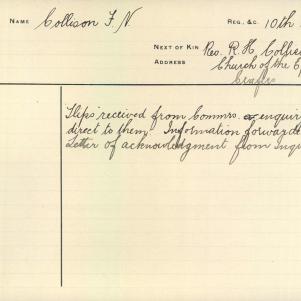 NAME Collison F. V. REG. &C. 10th
NEXT OF KIN Rev. R. H. Collis
ADDRESS Church of the Ep
Crafers
Slips received from Commrs. & enquir
direct to them. Information forwarded
Letter of acknowledgment from Inqu